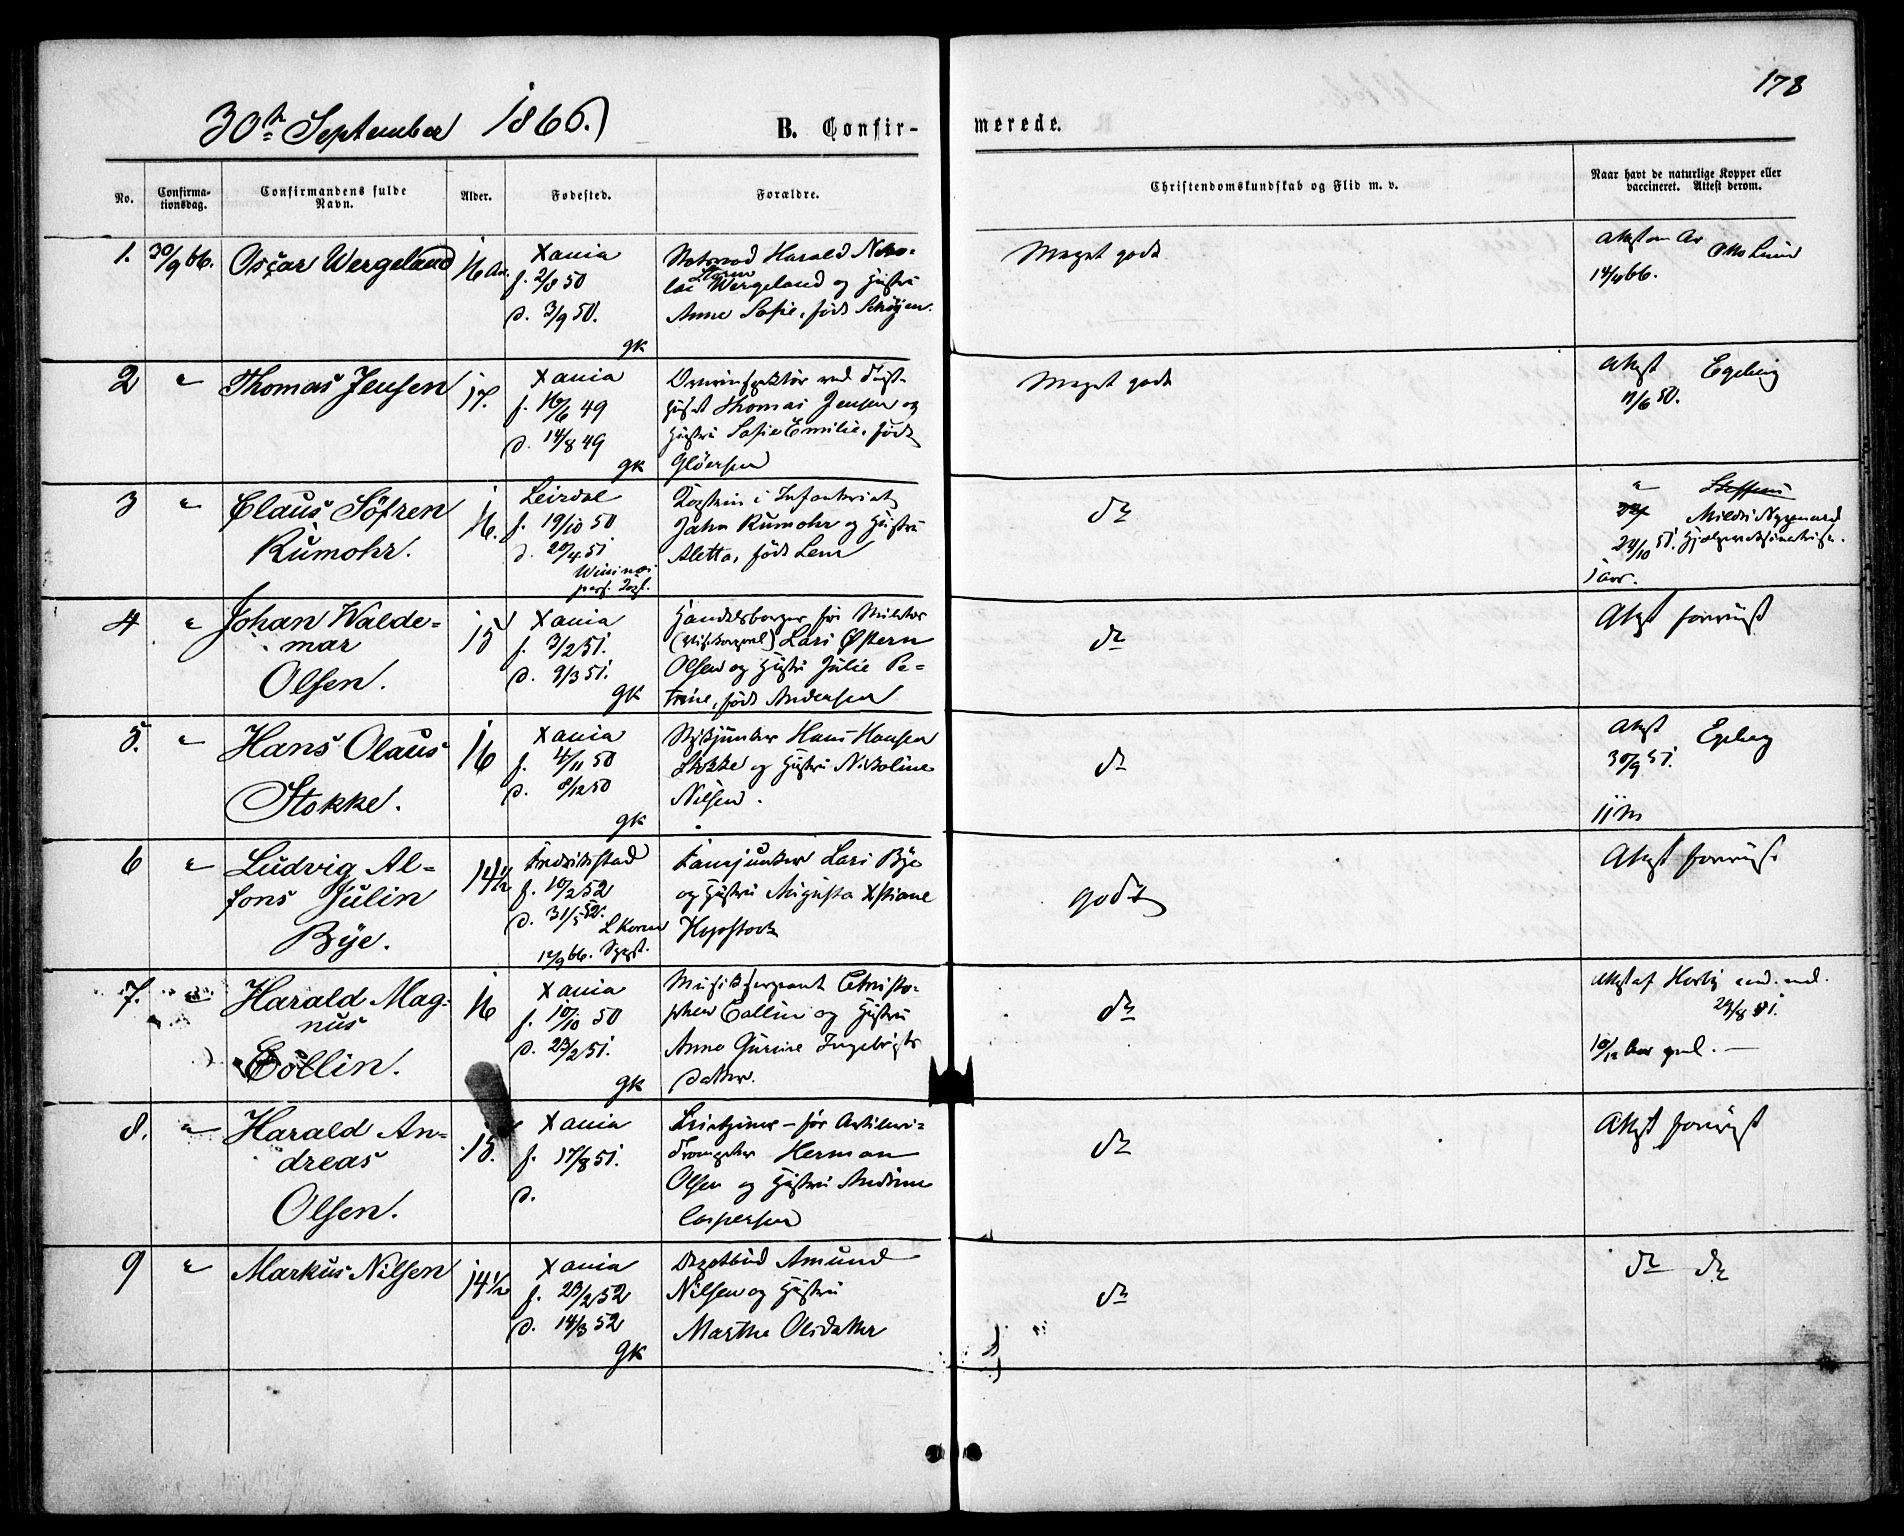 178
30te September 1866.)
B. Confir-
merede.
No.
Confirma-
tionsdag.
Confirmandens fulde
Navn.
Alder.
Fødested.
Forældre.
Christendomskundskab og Flid m. v.
Naar havt de naturlige Kopper eller
vaccineret. Attest derom.
1. 30/9 66. Oscar Wergeland 16 Aar
Xania
f. 2/8 50
d. 3/9 50.
gk
Statsraad Harald Nico-
lai Storm Wergeland og Hustru
Anne Sofie, født Schøyen.
Meget godt
Attest om Ar Otto Lund
14/4 66.
2 " Thomas Jensen 17.
Xania
f. 16/6 49
d. 14/8 49
gk
Thomas Jensen og
Hustru Sofie Emilie, født
Gløersen
Meget godt
Attest Egeberg
11/6 50.
3 " Claus Söfren
Rumohr.
16.
Leirdal
f. 19/10 50
d. 20/4 51
Kaptein i Infanteriet
Jahn Rumohr og Hustru
Aletta, født Lem
do
" Steffens
Nygaard
24/10 51.
1 Aar.
4 " Johan Walde-
mar
Olsen.
15
Xania
f. 3/2 51.
d. 9/3 51.
gk
Handelsborger før
Lars Østern
Olsen og Hustru Julie Pe-
trine, født Andersen
do
Attest forevist
5. " Hans Olaus
Stokke.
16
Xania
f. 4/11 50
d. 8/12 50
gk
Stykjunker Hans Hansen
Stokke og Hustru Nicoline
Nilsen.
do
Attest Egeberg
30/9 51.
11 M
6 " Ludvig Al-
fons Julin
Bÿe.
14 1/2
Fredrikstad
f. 10/2 52
d. 31/5 52.
12/9 66.
Fanejunker Lars Bye
og Hustru Augusta Xstiane
Hopstock
godt
Attest forevist
7. " Harald Mag-
nus
Collin.
16
Xania
f. 10/10 50
d. 23/2 51.
gk
Musiksergeant Christo-
pher Collin og Hustru
Anne Gurine Ingebrigts
datter.
do
Attest af Horby cand. med.
29/8 51.
10/12 Aar gml. —
8. " Harald An-
dreas
Olsen.
15.
Xania
f. 17/8 51.
d.
før Artilleri-
Trompeter Herman
Olsen og Hustru Andrine
Caspersen
do
Attest forevist
9 " Markus Nilsen 14 1/2
Xania
f. 23/2 52
d. 14/3 52
gk
Amund
Nilsen og Hustru
Marthe Olsdatter
do
do do